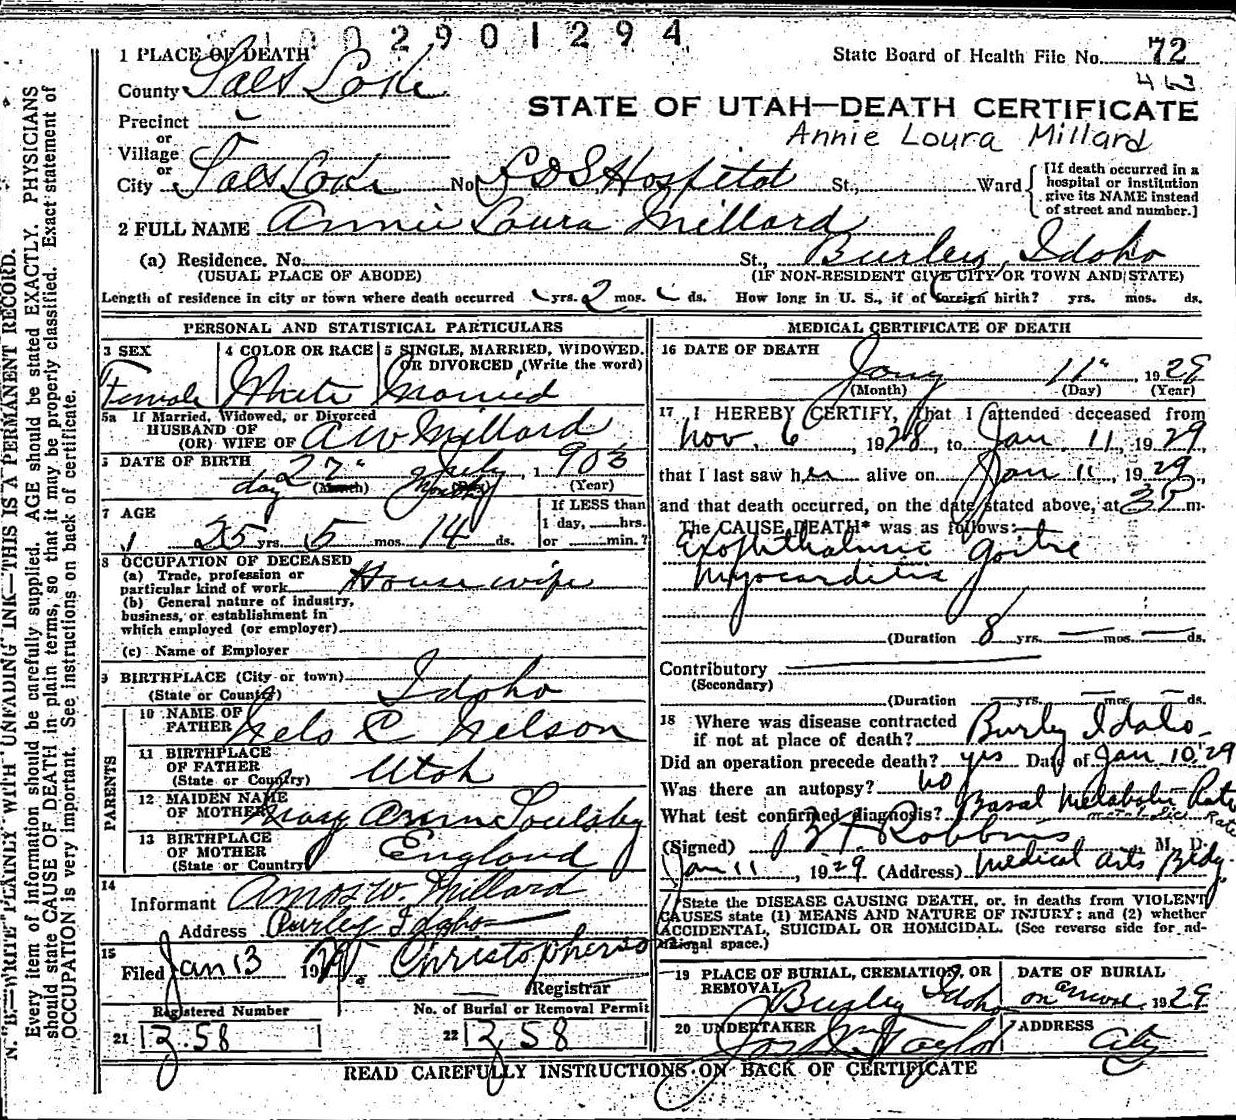 1 0 0 2 9 0 1 2 9 4
1 PLACE OF DEATH
State Board of Health File No. 72
462
County Salt Lake
STATE OF UTAH—DEATH CERTIFICATE
Precinct
Annie Loura Millard
or
Village
or
City Salt Lake No. LDS Hospital St., Ward
[If death occurred in a hospital or institution give its NAME instead of street and number.]
2 FULL NAME Annie Loura Millard
(a) Residence. No. St., Burley, Idaho
(USUAL PLACE OF ABODE) (IF NON-RESIDENT GIVE CITY OR TOWN AND STATE)
Length of residence in city or town where death occurred yrs. 2 mos. ds. How long in U. S., if of foreign birth? yrs. mos. ds.
PERSONAL AND STATISTICAL PARTICULARS
3 SEX 4 COLOR OR RACE 5 SINGLE, MARRIED, WIDOWED. OR DIVORCED (Write the word)
Female White Married
5a If Married, Widowed, or Divorced
HUSBAND OF
(OR) WIFE OF A W Millard
DATE OF BIRTH day 27" July, 1903
(Month) (Day) (Year)
7 AGE If LESS than
1 day, hrs.
25 yrs. 5 mos. 14 ds. or min.?
8 OCCUPATION OF DECEASED
(a) Trade, profession or
particular kind of work House wife
(b) General nature of industry,
business, or establishment in
which employed (or employer)
(c) Name of Employer
9 BIRTHPLACE (City or town)
(State or Country) Idaho
PARENTS
10 NAME OF
FATHER Nels C Nelson
11 BIRTHPLACE
OF FATHER Utah
(State or Country)
12 MAIDEN NAME
OF MOTHER Mary Ann Soulsby
13 BIRTHPLACE
OF MOTHER England
(State or Country)
14
Informant Amos W. Millard
Address Burley Idaho
15
Filed Jan 13 1929 Christopherson
Registrar
Registered Number No. of Burial or Removal Permit
21 Z.58 22 Z 58
MEDICAL CERTIFICATE OF DEATH
16 DATE OF DEATH
Jany 11", 1929
(Month) (Day) (Year)
17 I HEREBY CERTIFY, That I attended deceased from
Nov. 6, 1928, to Jan 11, 1929
that I last saw her alive on Jan 11, 1929,
and that death occurred, on the date stated above, at 3 P m.
The CAUSE DEATH* was as follows:
Exophthalmic goitre
Myocarditis
(Duration 8 yrs. — mos. — ds.
Contributory
(Secondary)
(Duration — yrs. — mos. — ds.
18 Where was disease contracted
if not at place of death? Burly Idaho
Did an operation precede death? yes Date of Jan 10 '29
Was there an autopsy? no
What test confirmed diagnosis? Basal Metabolic Rate
metabolic Rate
(Signed) Robbins M. D.
Jan 11, 1929 (Address) Medical Arts Bldg.
*State the DISEASE CAUSING DEATH, or, in deaths from VIOLENT
CAUSES state (1) MEANS AND NATURE OF INJURY; and (2) whether
ACCIDENTAL, SUICIDAL OR HOMICIDAL. (See reverse side for ad-
ditional space.)
19 PLACE OF BURIAL, CREMATION, OR DATE OF BURIAL
REMOVAL Burley Idaho 1929
20 UNDERTAKER ADDRESS
Taylor City
READ CAREFULLY INSTRUCTIONS ON BACK OF CERTIFICATE
N. B.—WRITE PLAINLY WITH UNFADING INK—THIS IS A PERMANENT RECORD.
Every item of information should be carefully supplied. AGE should be stated EXACTLY. PHYSICIANS
should state CAUSE OF DEATH in plain terms, so that it may be properly classified. Exact statement of
OCCUPATION is very important. See instructions on back of certificate.